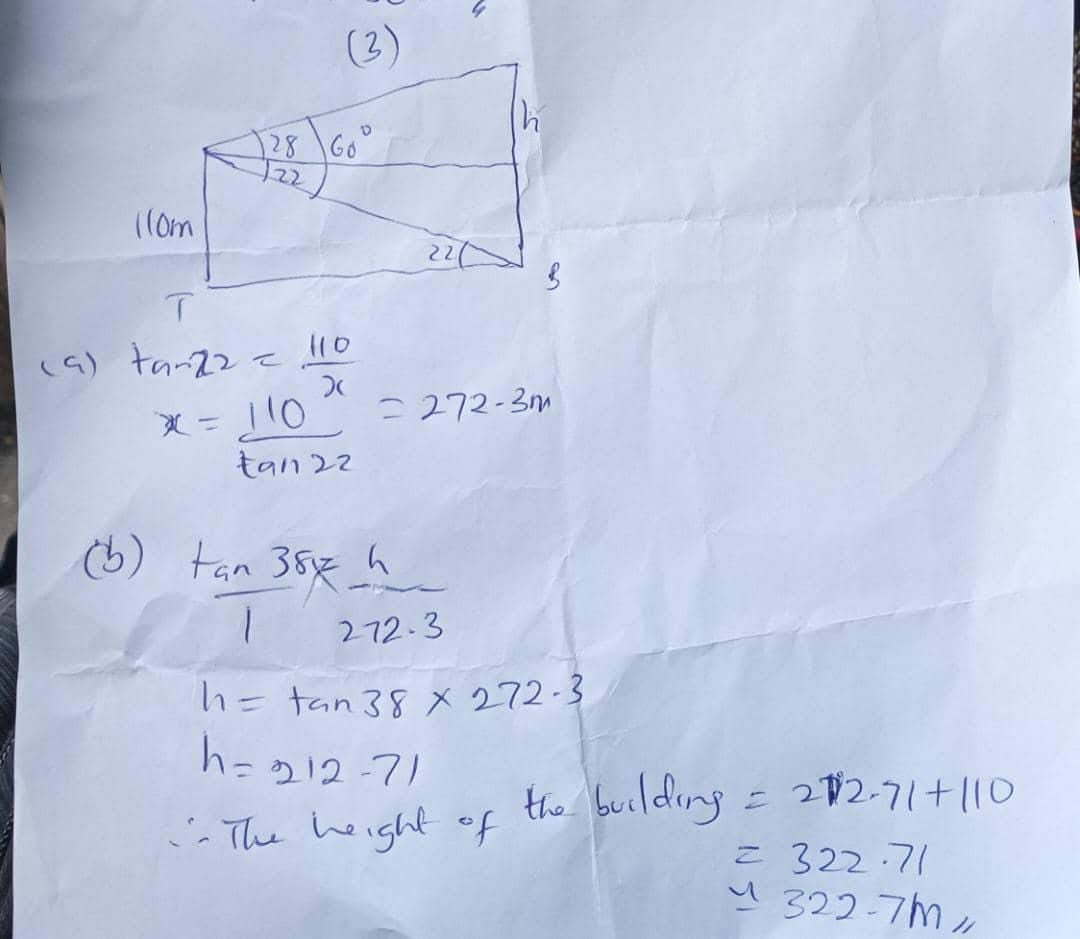 (3)
28
60°
h
22
110m
22
T
B
(a) tan22 = 110
x
x = 110 = 272.3m
tan 22
(b) tan 38 = h
1 272.3
h = tan 38 × 272.3
h = 212.71
∴ The height of the building = 212.71 + 110
= 322.71
≃ 322.7m